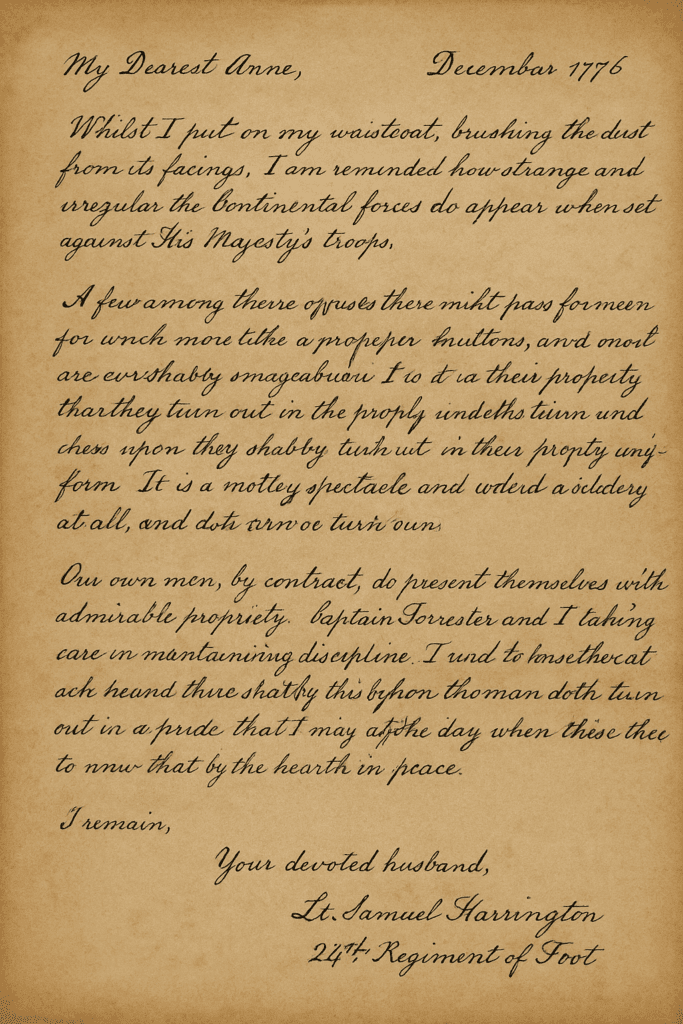 My Dearest Anne, Decembar 1776
Whilst I put on my waistcoat, brushing the dust
from its facings, I am reminded how strange and
irregular the Continental forces do appear when set
against His Majesty's troops.
A few among there there miht pass for meen
for more a propeper knuttons, and
are shabby I to their property
they turn out in the proply und
chess upon they shabby turh ut in their propty unif-
form It is a motley spectacle and
at all, and doth turn oun
Our own men, by contract, do present themselves with
admirable propriety. Captain Forrester and I taking
care in discipline. I und to
ack heand this thoman doth turn
out in a pride that I may the day when these thee
to nnw that by the hearth in peace.
I remain,
Your devoted husband,
Lt. Samuel Harrington
24th Regiment of Foot